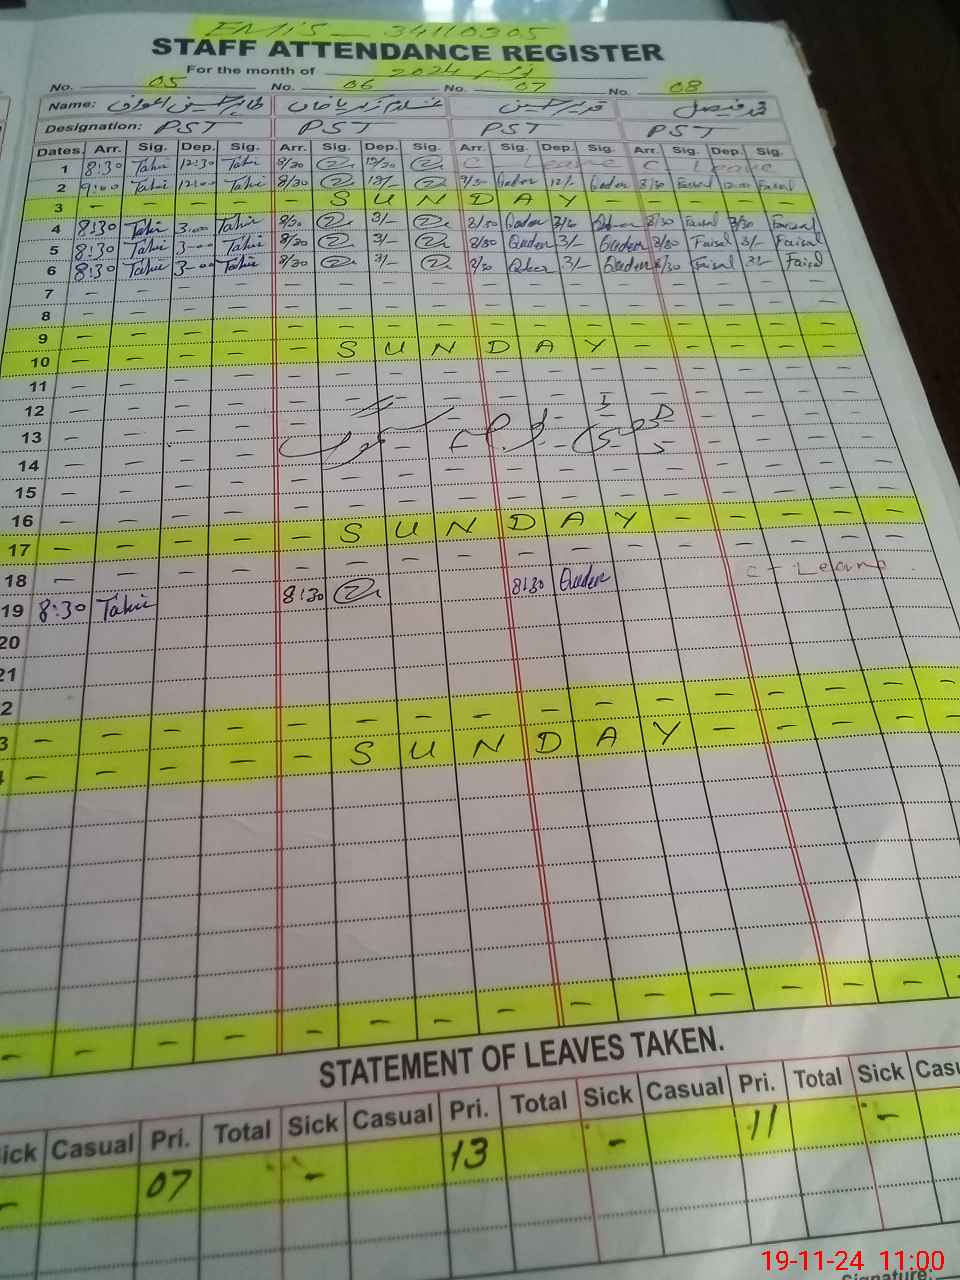 EMIS - 34110305
STAFF ATTENDANCE REGISTER
For the month of نومبر 2024
No. 05 No. 06 No. 07 No. 08
Name: طاہر حسین محمد فیصل
Designation: PST PST PST PST
Dates. Arr. Sig. Dep. Sig. Arr. Sig. Dep. Sig. Arr. Sig. Dep. Sig. Arr. Sig. Dep. Sig.
1 8:30 Tahir 12:30 Tahir 8/30 12/30 C - Leave C - Leave
2 9:00 Tahir 12:00 Tahir 8/30 12/- Qadeer 12/- Qadeer 8/30 Faisal 12:00 Faisal
3 - - - - - S U N D A Y - - - - -
4 8:30 Tahir 3:00 Tahir 8/30 3/- 8/30 Qadeer Qadeer 8/30 Faisal 3/30 Faisal
5 8:30 Tahir 3-00 Tahir 8/30 3/- 8/30 Qadeer 3/- Qadeer 8/30 Faisal 3/- Faisal
6 8:30 Tahir 3-00 Tahir 8/30 3/- 8/30 Qadeer 3/- Qadeer 8/30 Faisal 3/- Faisal
7 - - - - - - - - - - - - - - - -
8 - - - - - - - - - - - - - - - -
9 - - - - - - - - - - - - - - - -
10 - - - - - S U N D A Y - - - - -
11 - - - - - - - - - - - - - - - -
12 - - - - - - - - - - - - - - - -
13 - - - -
14 - - - - - - - - - - - - - - - -
15 - - - - - - - - - - - - - - - -
16 - - - - - - - - - - - - - - - -
17 - - - - - S U N D A Y - - - - -
18 - - - - - - - - - - - -
19 8:30 Tahir 8:30 8:30 Qadeer C - Leave
20
21
2
3 - - - - - - - - - - - - - - - -
4 - - - - - S U N D A Y - - - - -
- - - - - - - - - - - - - -
STATEMENT OF LEAVES TAKEN.
ick Casual Pri. Total Sick Casual Pri. Total Sick Casual Pri. Total Sick Casu
- 07 - 13 - 11 -
Signature:
19-11-24 11:00